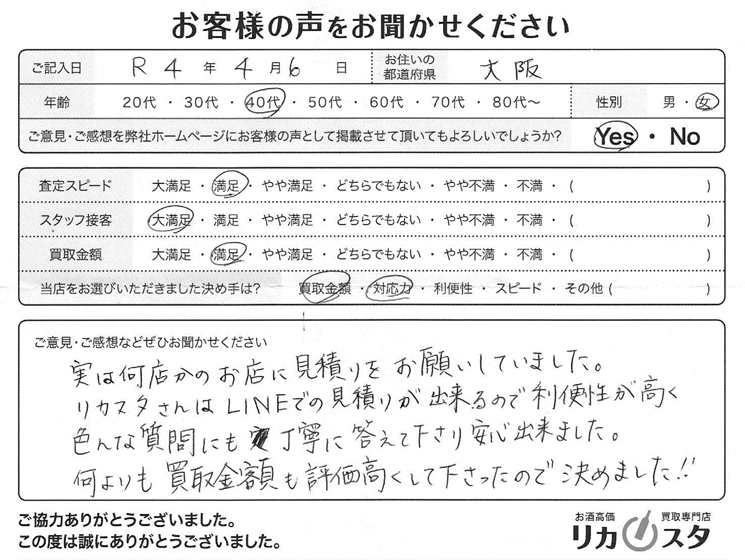 お客様の声をお聞かせください
ご記入日 R 4 年 4 月 6 日 お住いの都道府県 大阪
年齢 20代 ・ 30代 ・ 40代 ・ 50代 ・ 60代 ・ 70代 ・ 80代～ 性別 男 ・ 女
ご意見・ご感想を弊社ホームページにお客様の声として掲載させて頂いてもよろしいでしょうか? Yes ・ No
査定スピード 大満足 ・ 満足 ・ やや満足 ・ どちらでもない ・ やや不満 ・ 不満 ・ ( )
スタッフ接客 大満足 ・ 満足 ・ やや満足 ・ どちらでもない ・ やや不満 ・ 不満 ・ ( )
買取金額 大満足 ・ 満足 ・ やや満足 ・ どちらでもない ・ やや不満 ・ 不満 ・ ( )
当店をお選びいただきました決め手は? 買取金額 ・ 対応力 ・ 利便性 ・ スピード ・ その他 ( )
ご意見・ご感想などぜひお聞かせください
実は何店かのお店に見積りをお願いしていました。
リカスタさんはLINEでの見積りが出来るので利便性が高く
色んな質問にも丁寧に答えて下さり安心出来ました。
何よりも買取金額も評価高くして下さったので決めました!!
ご協力ありがとうございました。
この度は誠にありがとうございました。
お酒高価 買取専門店
リカスタ